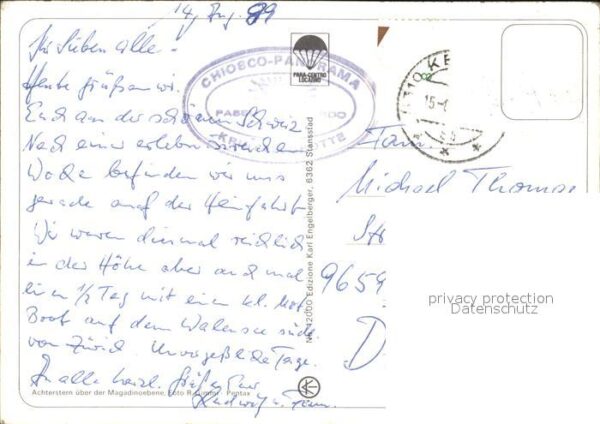 14. Aug. 89
Ihr Lieben alle -
Heute grüßen wir
Euch aus der schönen Schweiz
Nach einer erlebnisreichen
Woche befinden wir uns
gerade auf der Heimfahrt
Wir waren diesmal reichlich
in der Höhe aber auch mal
einen ½ Tag mit einem kl. Mot.
Boot auf dem Walensee südl.
von Zürich. Unvergeßliche Tage.
An alle herzl. Grüße Eure
Ludwig u. Fam.
Achterstern über der Magadinoebene, Foto Pentax
CHIOSCO-PANORAMA
PARA-CENTRO
LOCARNO
Nr. 42000 Edizione Karl Engelberger, 6362 Stansstad
15.
Fam.
Michael Thomas
9659
D
privacy protection
Datenschutz